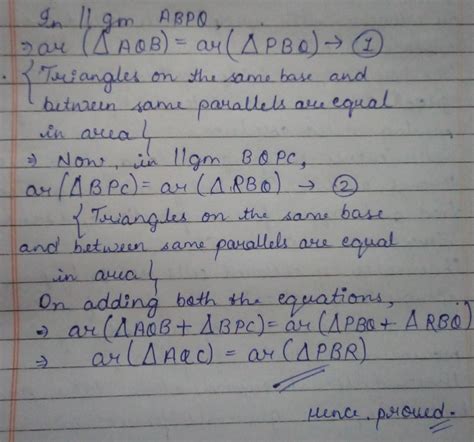 In ||gm ABPQ,
⇒ ar (△AQB) = ar (△PBQ) → ①
{Triangles on the same base and
between same parallels are equal
in area}
⇒ Now, in ||gm BQPC,
ar (△BPC) = ar (△RBQ) → ②
{Triangles on the same base
and between same parallels are equal
in area}
On adding both the equations,
⇒ ar (△AQB + △BPC) = ar (△PBQ + △RBQ)
⇒ ar (△AQC) = ar (△PBR)
Hence proved.